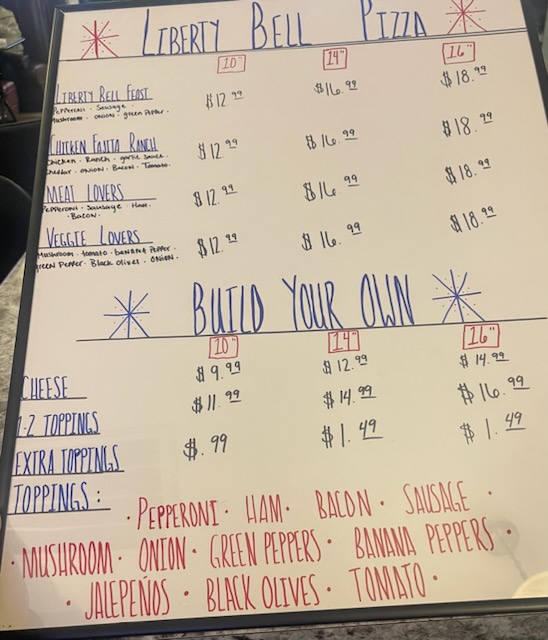 LIBERTY BELL PIZZA
10" 14" 16"
LIBERTY BELL FEAST $12.99 $16.99 $18.99
Pepperoni · Sausage ·
Mushroom · onion · green Pepper ·
CHICKEN FAJITA RANCH $12.99 $16.99 $18.99
Chicken · Ranch · garlic sauce ·
Cheddar · ONION · Bacon · Tomato ·
MEAT LOVERS $12.99 $16.99 $18.99
Pepperoni · Sausage · Ham ·
· Bacon ·
VEGGIE LOVERS $12.99 $16.99 $18.99
Mushroom · tomato · banana Pepper ·
green Pepper · Black olives · ONION ·
BUILD YOUR OWN
10" 14" 16"
CHEESE $9.99 $12.99 $14.99
1-2 TOPPINGS $11.99 $14.99 $16.99
EXTRA TOPPINGS $.99 $1.49 $1.49
TOPPINGS:
· PEPPERONI · HAM · BACON · SAUSAGE ·
· MUSHROOM · ONION · GREEN PEPPERS · BANANA PEPPERS ·
· JALEPEÑOS · BLACK OLIVES · TOMATO ·